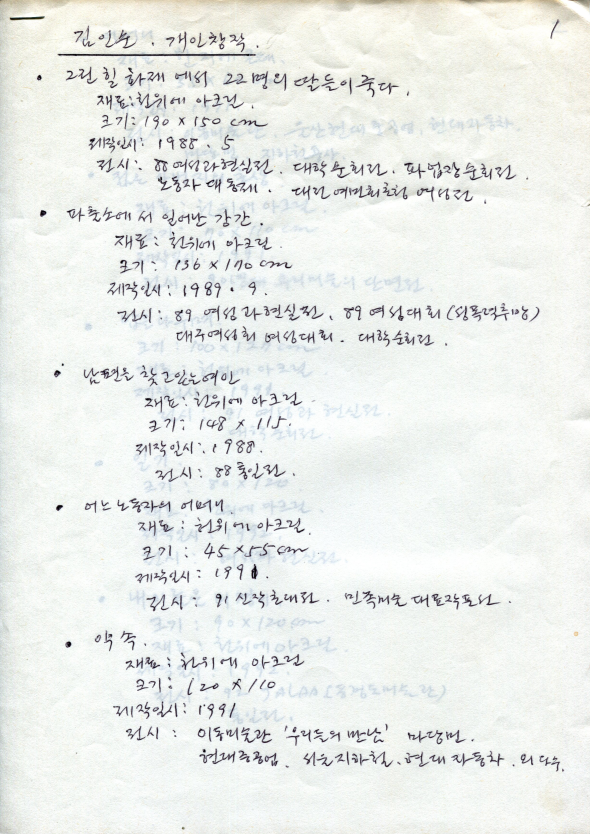 1
김인순 . 개인창작 .
• 그린힐 화재에서 22명의 딸들이 죽다 .
재료 : 천위에 아크릴 .
크기 : 190 × 150 cm
제작일시 : 1988 . 5
전시 : 88 여성과현실전 . 대학순회전 . 파업장순회전 .
노동자 대동제 .
• 파출소에서 일어난 강간 .
재료 : 천위에 아크릴 .
크기 : 136 × 170 cm
제작일시 : 1989 . 9 .
전시 : 89 여성과현실전 . 89 여성대회 (성폭력추방)
여성대회 . 대학순회전 .
• 남편을 찾고있는여인
재료 : 천위에 아크릴 .
크기 : 148 × 115 .
제작일시 : 1988 .
전시 : 88 통일전 .
• 어느 노동자의 어머니
재료 : 천위에 아크릴 .
크기 : 45 × 55 cm
제작일시 : 1991 .
전시 : 91 신작초대전 . 민족미술 대표작품전 .
• 약속 .
재료 : 천위에 아크릴
크기 : 120 × 110
제작일시 : 1991
전시 : 이동미술관 '우리들의 만남'
현대중공업 . 서울지하철 . 현대자동차 . 외 다수 .